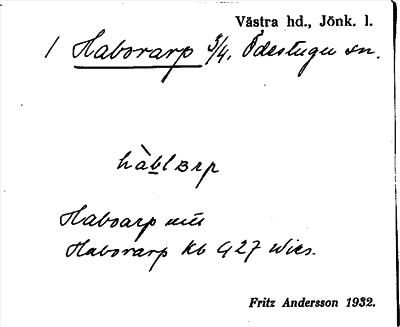 Västra hd., Jönk. l.
1 Haborarp 3/4. Ödestugu sn.
hàblarp
Haboarp
Haborarp Kb 927 Wies.
Fritz Andersson 1932.